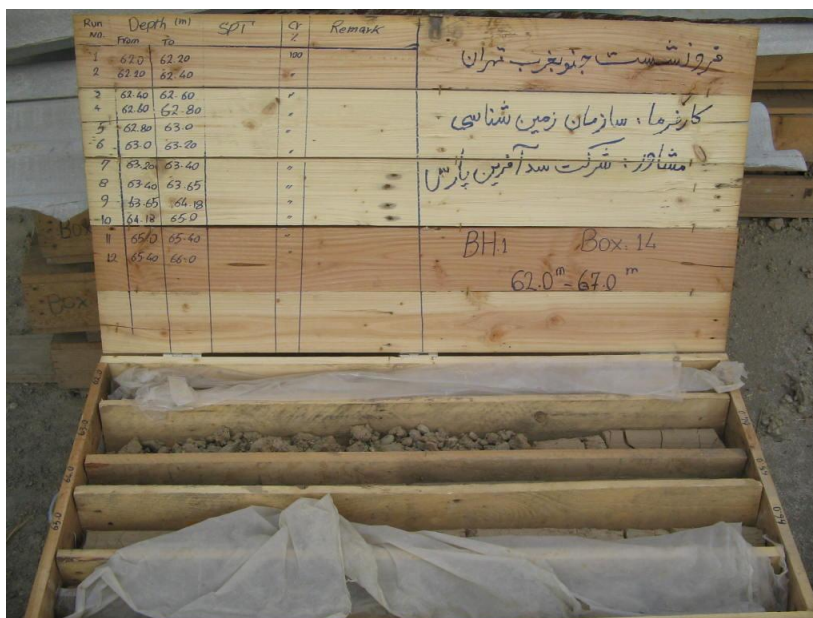 Run No. Depth (m) From To SPT Cr % Remark
1 62.0 62.20 100
2 62.20 62.40 "
3 62.40 62.60 "
4 62.60 62.80 "
5 62.80 63.0 "
6 63.0 63.20 "
7 63.20 63.40 "
8 63.40 63.65 "
9 63.65 64.18 "
10 64.18 65.0 "
11 65.0 65.40 "
12 65.40 66.0 "
فرونشست جنوبغرب تهران
کارفرما: سازمان زمین شناسی
مشاور: شرکت سدآفرین پارس
BH.1 Box: 14
62.0m - 67.0m
Box